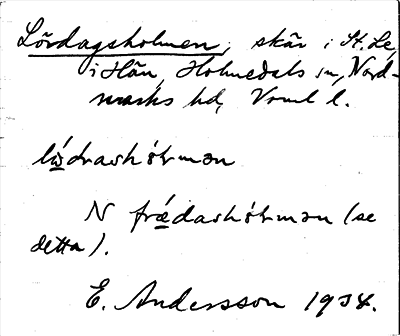 Lördagsholmen, skär i St. Le,
i Hån, Holmedals sn, Nord-
marks hd, Vrml l.
lǿdrashólmən
N frǽdashólmən (se
detta).
E. Andersson 1934.